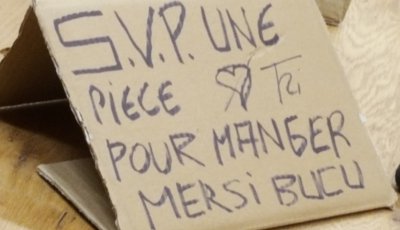 S.V.P. UNE
PIECE
POUR MANGER
MERSi BUCU